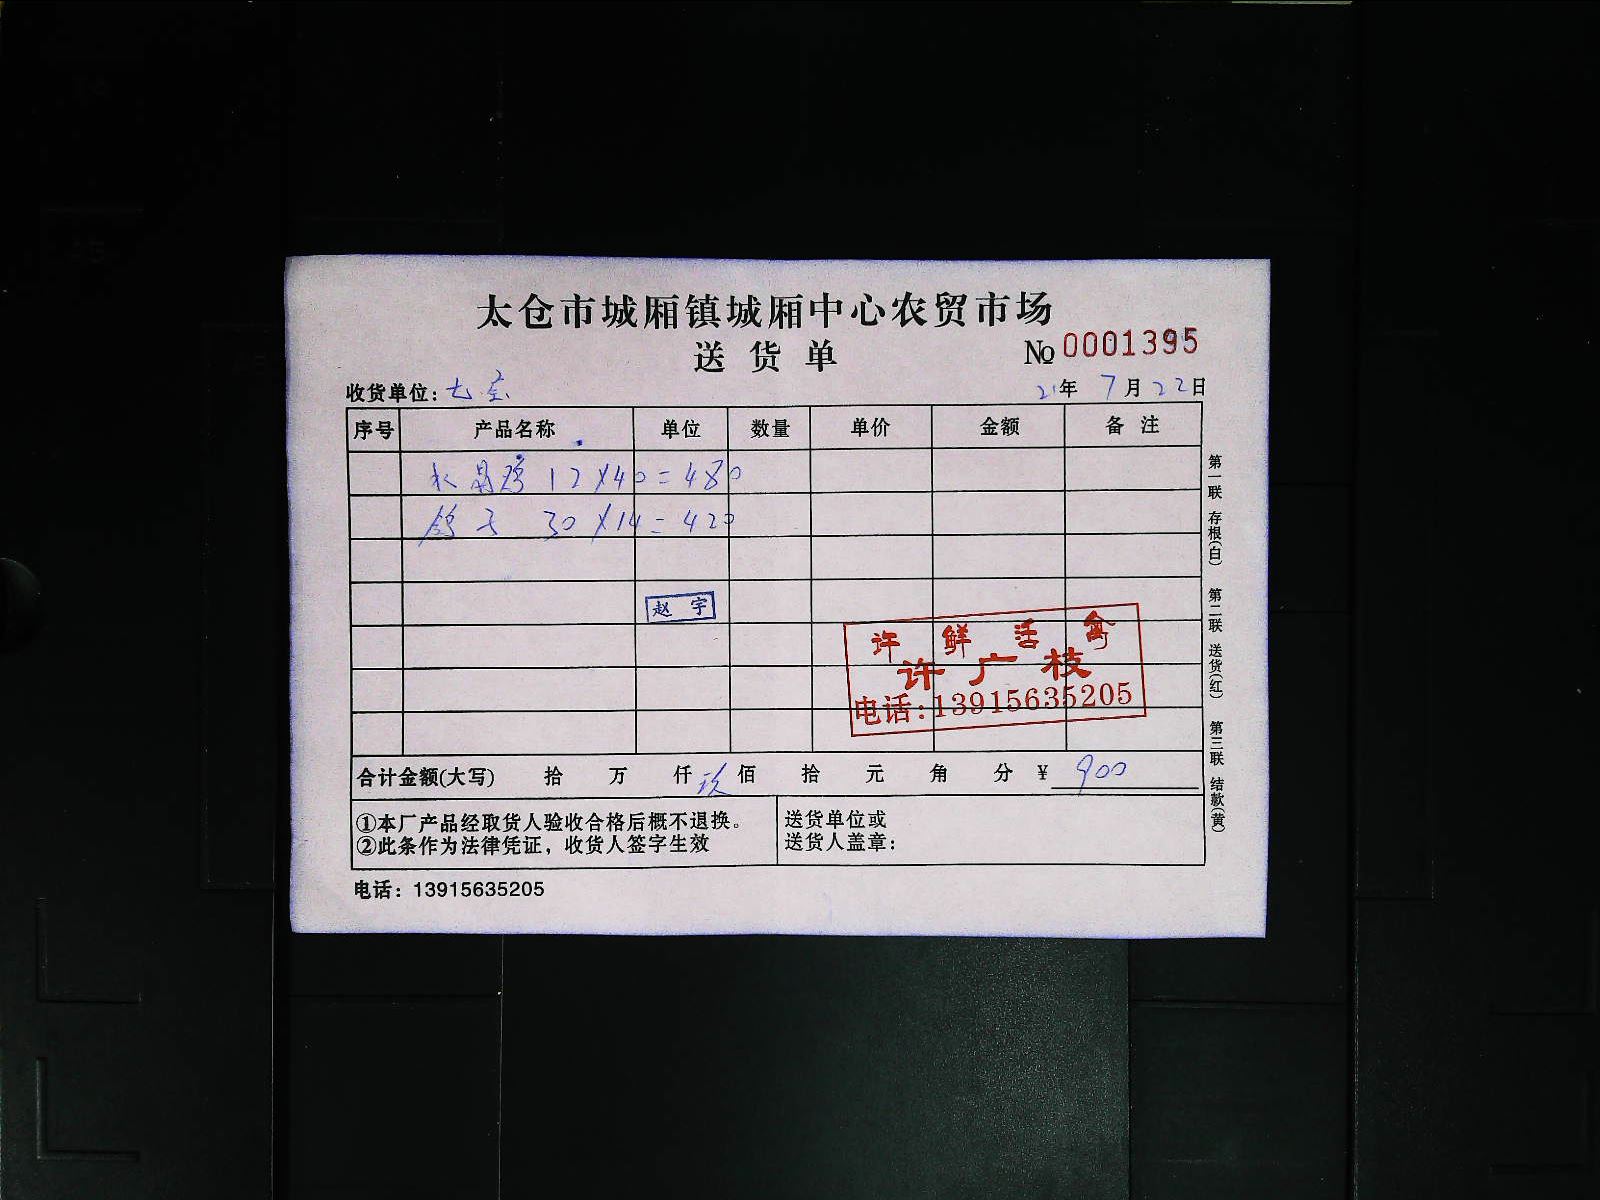 太仓市城厢镇城厢中心农贸市场
送货单
№ 0001395
收货单位:
21年 7月22日
序号 产品名称 单位 数量 单价 金额 备注
12×40=480
鸽子 30×14=420
赵宇
许鲜活禽
许广枝
电话:13915635205
合计金额(大写) 拾 万 仟 玖佰 拾 元 角 分 ¥ 900
①本厂产品经取货人验收合格后概不退换。
②此条作为法律凭证，收货人签字生效
送货单位或
送货人盖章:
电话: 13915635205
第一联 存根(白) 第二联 送货(红) 第三联 结款(黄)